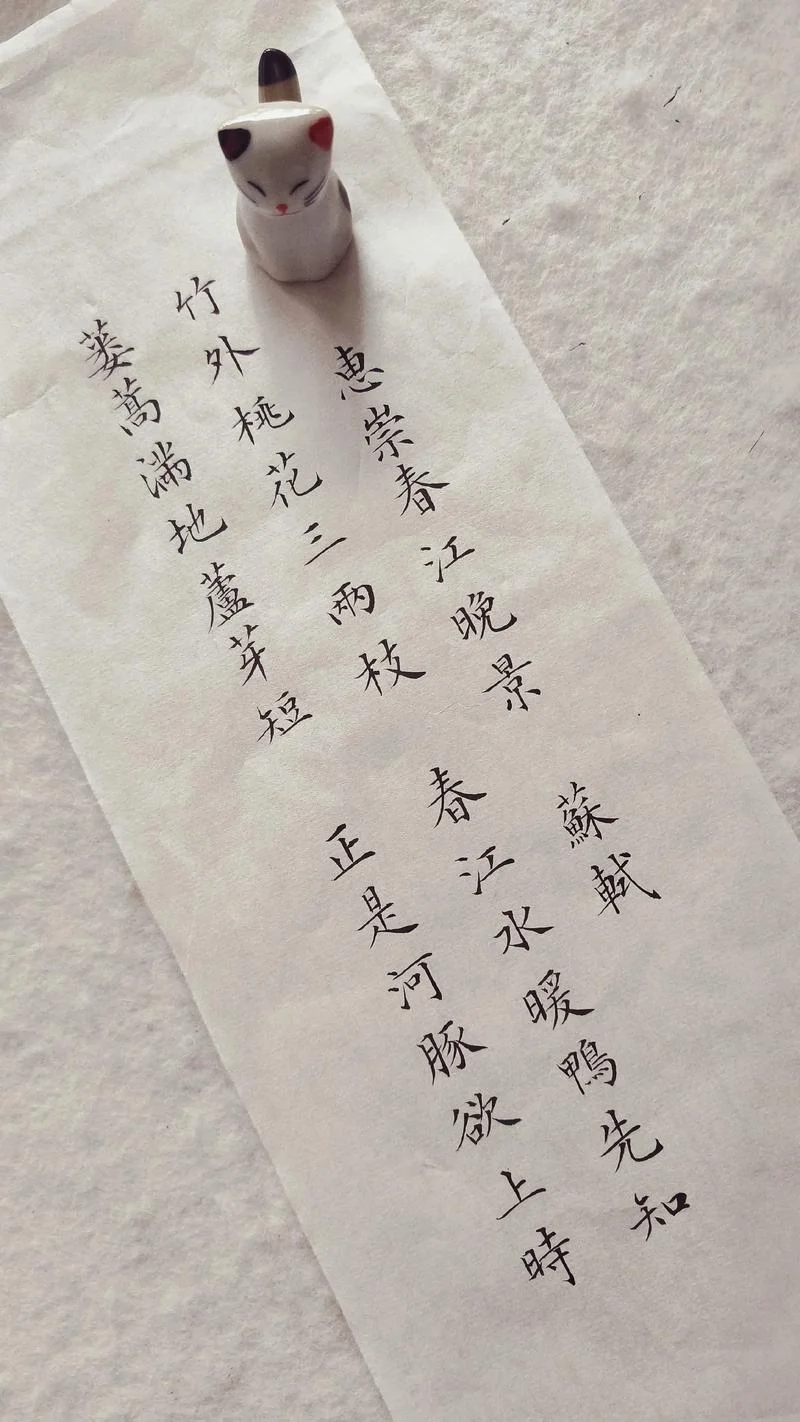 惠崇春江晚景
蘇軾
竹外桃花三兩枝
春江水暖鴨先知
蔞蒿滿地蘆芽短
正是河豚欲上時